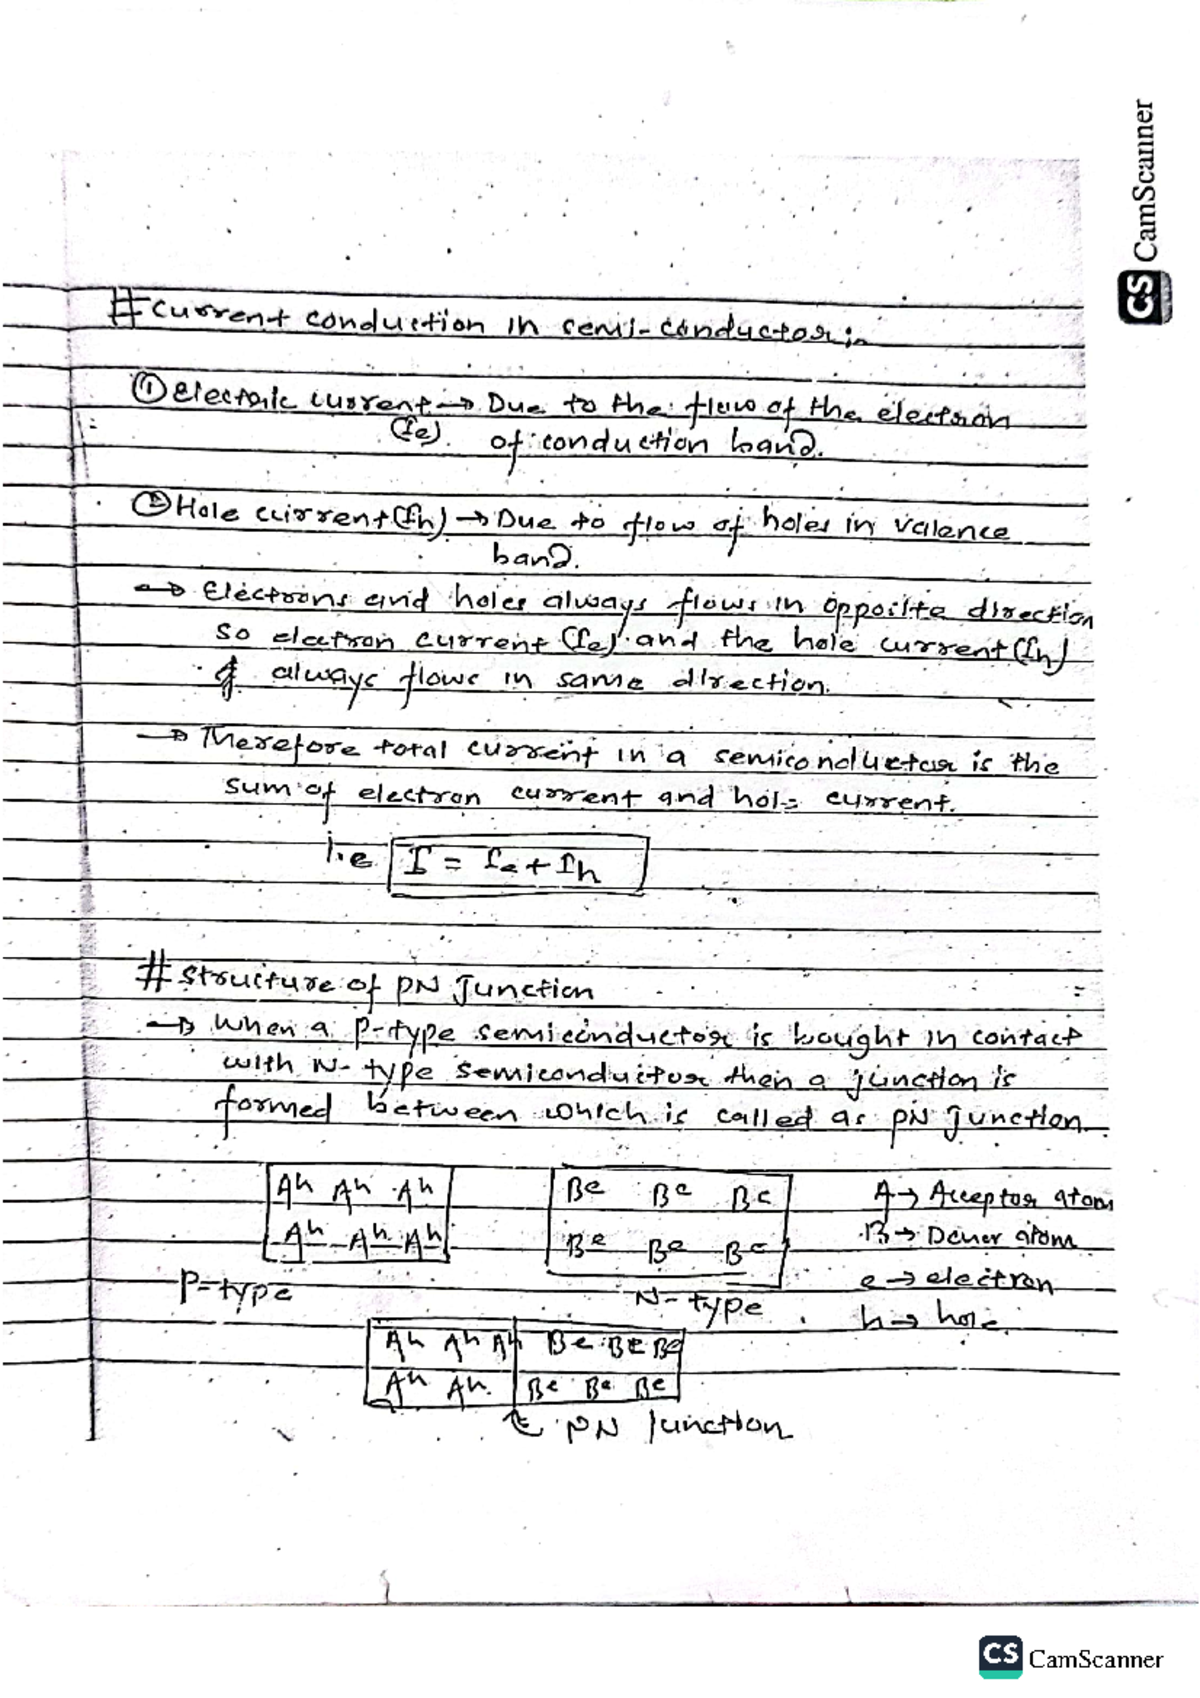 CS CamScanner
# Current conduction in semi-conductor :-
① Electric current → Due to the flow of the electron
(Ie). of conduction band.
② Hole current (Ih) → Due to flow of holes in valence
band.
→ Electrons and holes always flows in opposite direction
so electron current (Ie) and the hole current (Ih)
always flows in same direction.
→ Therefore total current in a semiconductor is the
sum of electron current and hole current.
i.e I = Ie + Ih
# Structure of PN Junction
→ When a P-type semiconductor is bought in contact
with N-type semiconductor then a junction is
formed between which is called as PN junction.
Ah Ah Ah Be Be Be A → Acceptor atom
Ah Ah Ah Be Be Be B → Doner atom
P-type N-type e → electron
h → hole.
Ah Ah Ah Be Be Be
Ah Ah Be Be Be
PN Junction
CS CamScanner